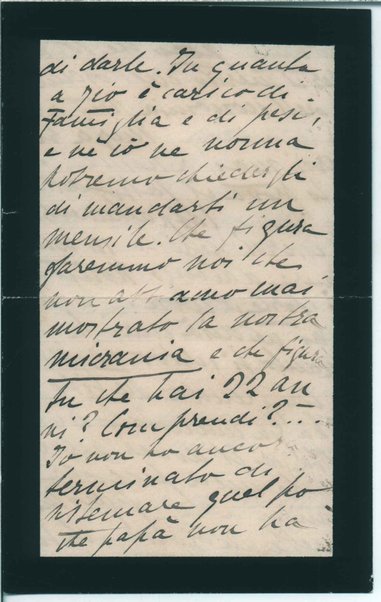 di darle. In quanto
a zio è carico di
famiglia e di pesi,
e nè io nè nonna
potremo chiedergli
di mandarti un
mensile. Che figura
faremmo noi che
non abbiamo mai
mostrato la nostra
micrania e che figura
tu che hai 22 an
ni? Comprendi?....
Io non ho ancora
terminato di
sistemare quel po
che papà non ha